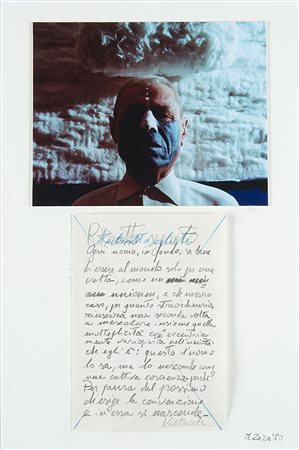 Ritratto segreto
Ogni uomo, in fondo, sa bene
di essere al mondo solo per una
volta, come un
unicum, e che nessun
caso, per quanto straordinario
una seconda volta
a mescolare insieme quella
molteplicità così
mente variopinta nell'unità
che egli è: questo l'uomo
lo sa, ma lo nasconde come
una cattiva coscienza, perché?
Per paura del prossimo
che esige la convenzione
e in essa si nasconde.
Nietzsche
M. Zaza '80